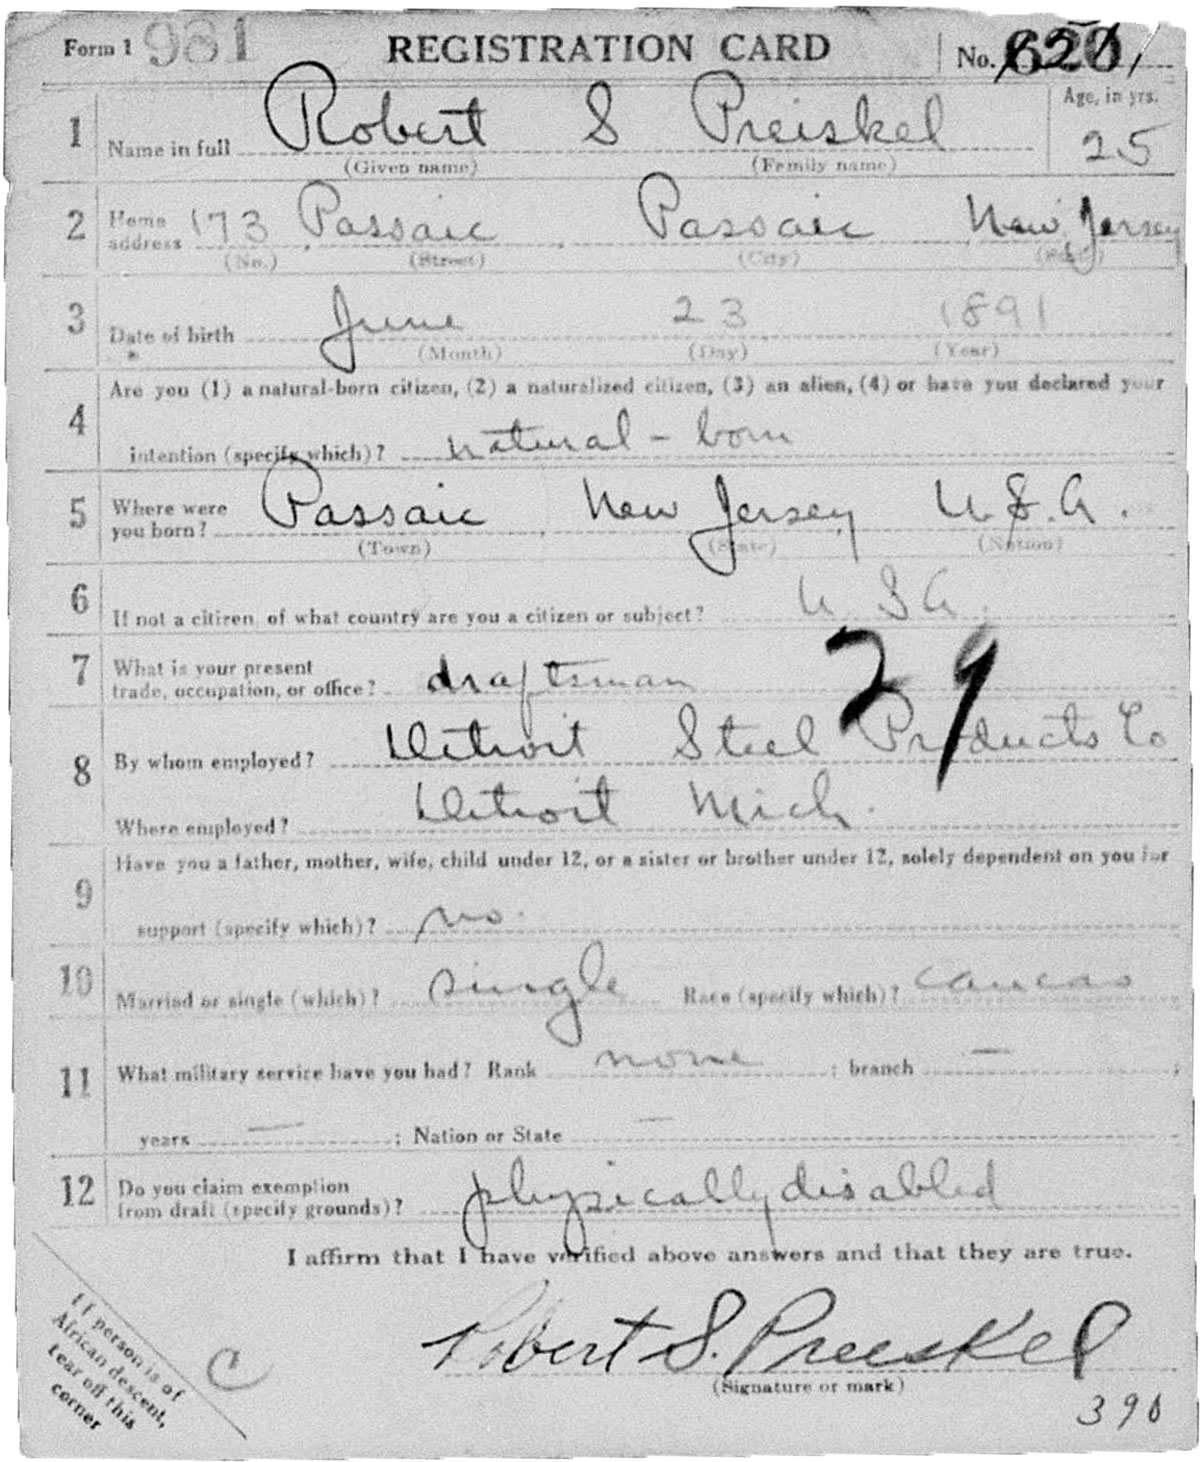 Form 1 981 REGISTRATION CARD No.
1 Name in full Robert S Preiskel Age, in yrs. 25
(Given name) (Family name)
2 Home address 173 Passaic Passaic New Jersey
(No.) (Street) (City) (State)
3 Date of birth June 23 1891
(Month) (Day) (Year)
4 Are you (1) a natural-born citizen, (2) a naturalized citizen, (3) an alien, (4) or have you declared your
intention (specify which)? natural - born
5 Where were you born? Passaic New Jersey U.S.A.
(Town) (State) (Nation)
6 If not a citizen, of what country are you a citizen or subject? U S A.
7 What is your present trade, occupation, or office? draftsman
29
8 By whom employed? Detroit Steel Products Co
Where employed? Detroit Mich.
9 Have you a father, mother, wife, child under 12, or a sister or brother under 12, solely dependent on you for
support (specify which)? no.
10 Married or single (which)? single Race (specify which)? caucas
11 What military service have you had? Rank none ; branch — ;
years — ; Nation or State —
12 Do you claim exemption from draft (specify grounds)? physically disabled
I affirm that I have verified above answers and that they are true.
Robert S. Preiskel
(Signature or mark)
If person is of
African descent,
tear off this
corner
C
390